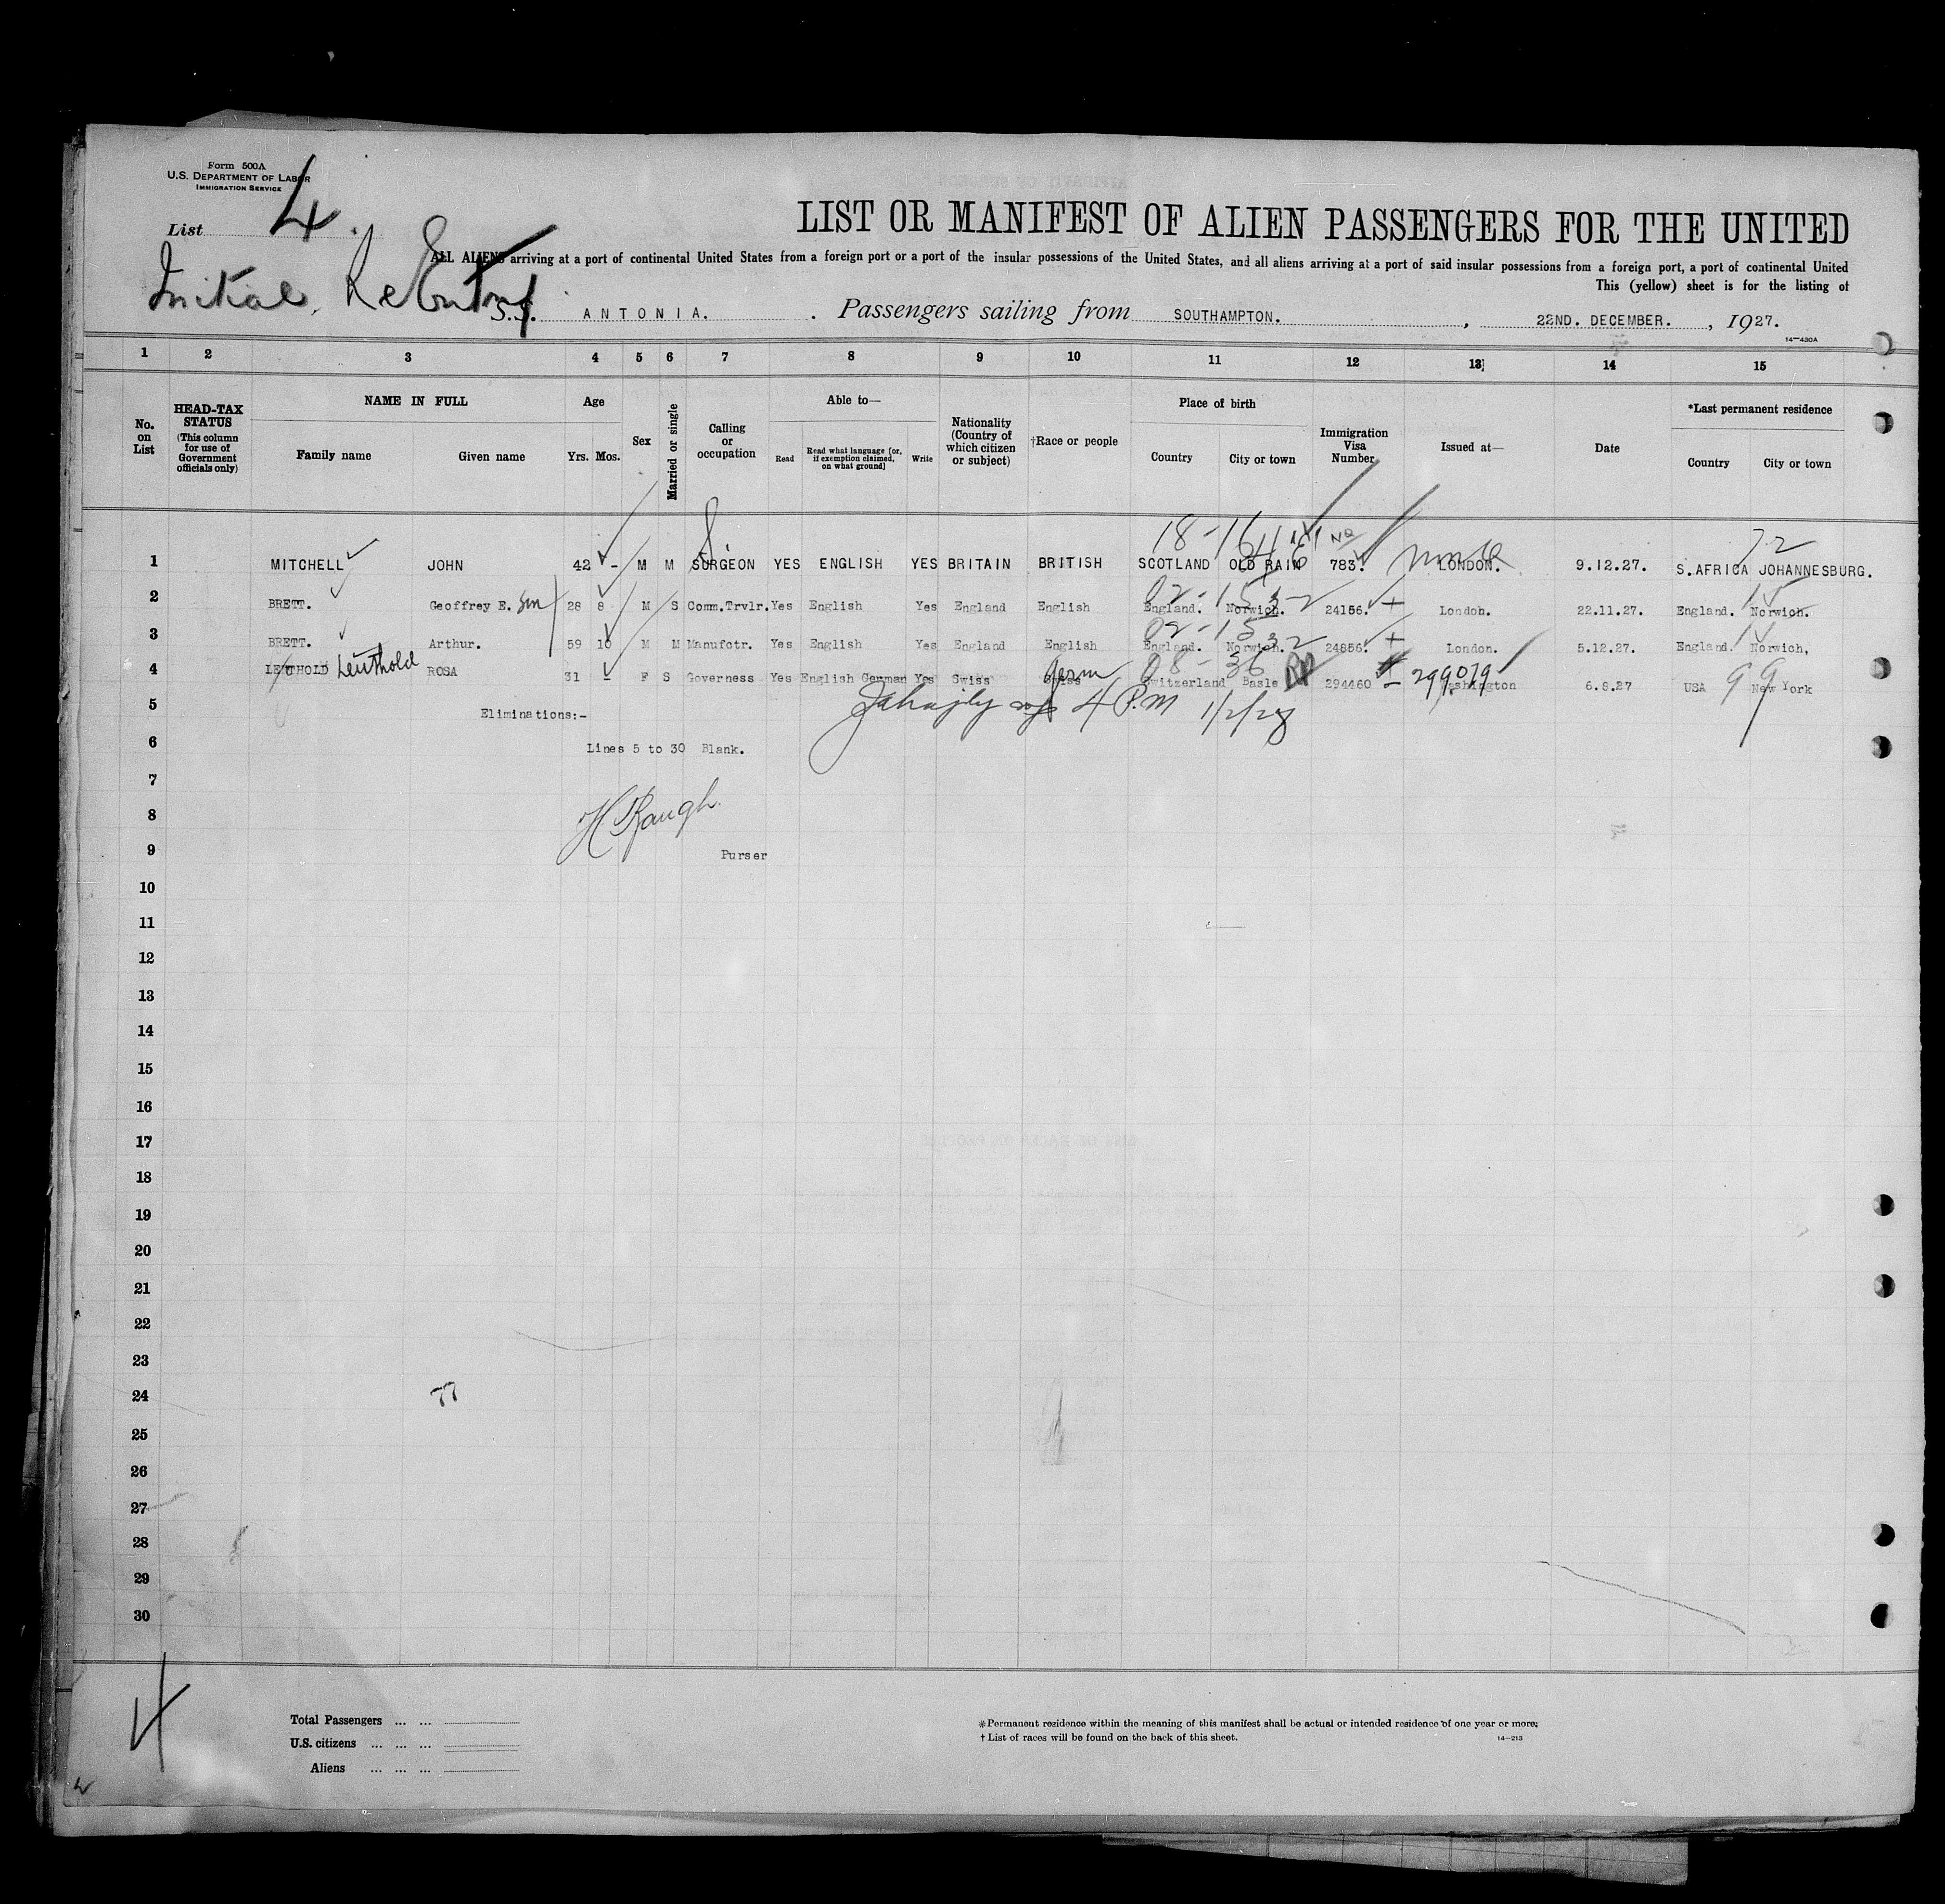 Form 500A
U.S. DEPARTMENT OF LABOR
IMMIGRATION SERVICE
List 4.
LIST OR MANIFEST OF ALIEN PASSENGERS FOR THE UNITED
ALL ALIENS arriving at a port of continental United States from a foreign port or a port of the insular possessions of the United States, and all aliens arriving at a port of said insular possessions from a foreign port, a port of continental United
This (yellow) sheet is for the listing of
Initial ReEntry
S.S. ANTONIA. Passengers sailing from SOUTHAMPTON. , 22ND. DECEMBER. , 1927.
14—430A
1 2 3 4 5 6 7 8 9 10 11 12 13 14 15
No. on List
HEAD-TAX STATUS (This column for use of Government officials only)
NAME IN FULL Family name Given name
Age Yrs. Mos.
Sex
Married or single
Calling or occupation
Able to— Read Read what language [or, if exemption claimed, on what ground] Write
Nationality (Country of which citizen or subject)
†Race or people
Place of birth Country City or town
Immigration Visa Number
Issued at—
Date
*Last permanent residence Country City or town
18-16 NQ 72
1 MITCHELL JOHN 42 - M M SURGEON YES ENGLISH YES BRITAIN BRITISH SCOTLAND OLD RAIN 783. LONDON. 9.12.27. S.AFRICA JOHANNESBURG.
02-15 32
2 BRETT. Geoffrey E. son 28 8 M S Comm.Trvlr. Yes English Yes England English England. Norwich. 24156. + London. 22.11.27. England. Norwich.
02-15 32
3 BRETT. Arthur. 59 10 M M Manufctr. Yes English Yes England English England. Norwich. 24856. + London. 5.12.27. England. Norwich,
4 LEUHOLD Leuthold ROSA 31 - F S Governess Yes English German Yes Swiss Swiss Germ Switzerland Basle 08-36 RP 294460 299079 Washington 6.8.27 USA New York 99
5 Eliminations:- 4 P.M 1/2/28
6 Lines 5 to 30 Blank.
7
8 H Raugh.
9 Purser
10
11
12
13
14
15
16
17
18
19
20
21
22
23
24
25
26
27
28
29
30
4
Total Passengers ... ...
U.S. citizens ... ... ...
Aliens ... ... ...
*Permanent residence within the meaning of this manifest shall be actual or intended residence of one year or more.
† List of races will be found on the back of this sheet.
14—213